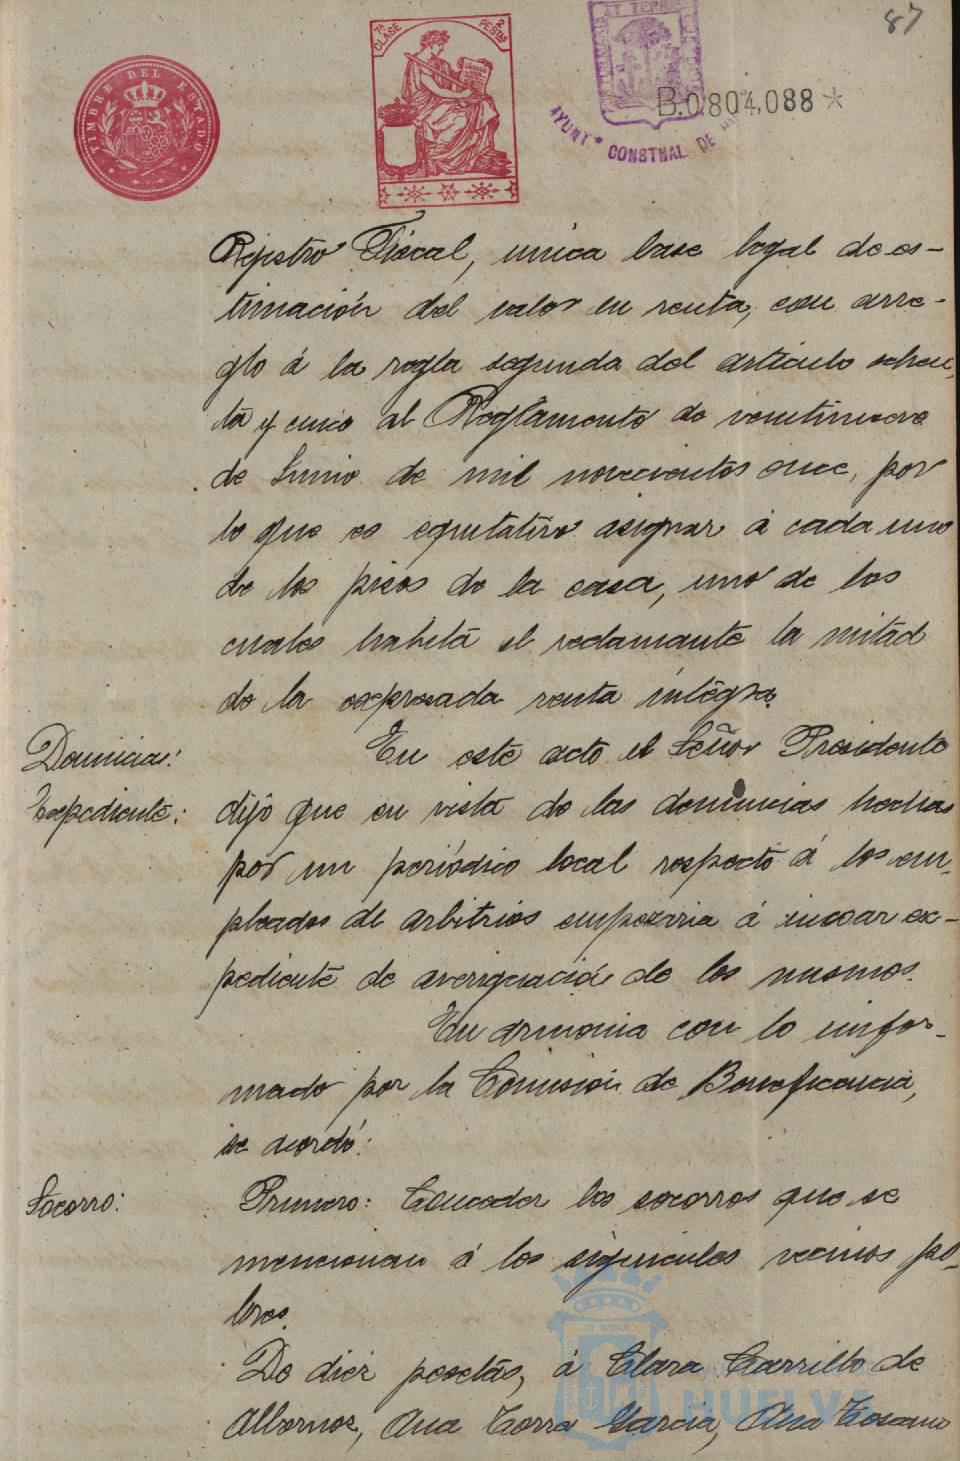 87
TIMBRE DEL ESTADO
7ª CLASE 2 PESETAS
B.0.804,088*
AYUNT° CONSTNAL DE
Rejistro Fiscal, unica base legal de es-
timación del valor en renta, con arre-
glo á la regla segunda del artículo ochen-
ta y cinco al Reglamento de veintinueve
de Junio de mil novecientos once, por
lo que es equitativo asignar á cada uno
de los pisos de la casa, uno de los
cuales habita el reclamante la mitad
de la expresada renta íntegra.
Denuncia:
Expediente:
En este acto el Señor Presidente
dijo que en vista de las denuncias hechas
por un periódico local respecto á los em-
pleados de arbitrios empezaria á incoar ex-
pediente de averiguación de los mismos.
En armonia con lo infor-
mado por la Comisión de Beneficencia,
se acordó:
Socorro:
Primero: Conceder los socorros que se
mencionan á los siguientes vecinos po-
bres.
De diez pesetas, á Clara Carrillo de
Albornoz, Ana Torra Garcia, Ana Toscano
HUELVA